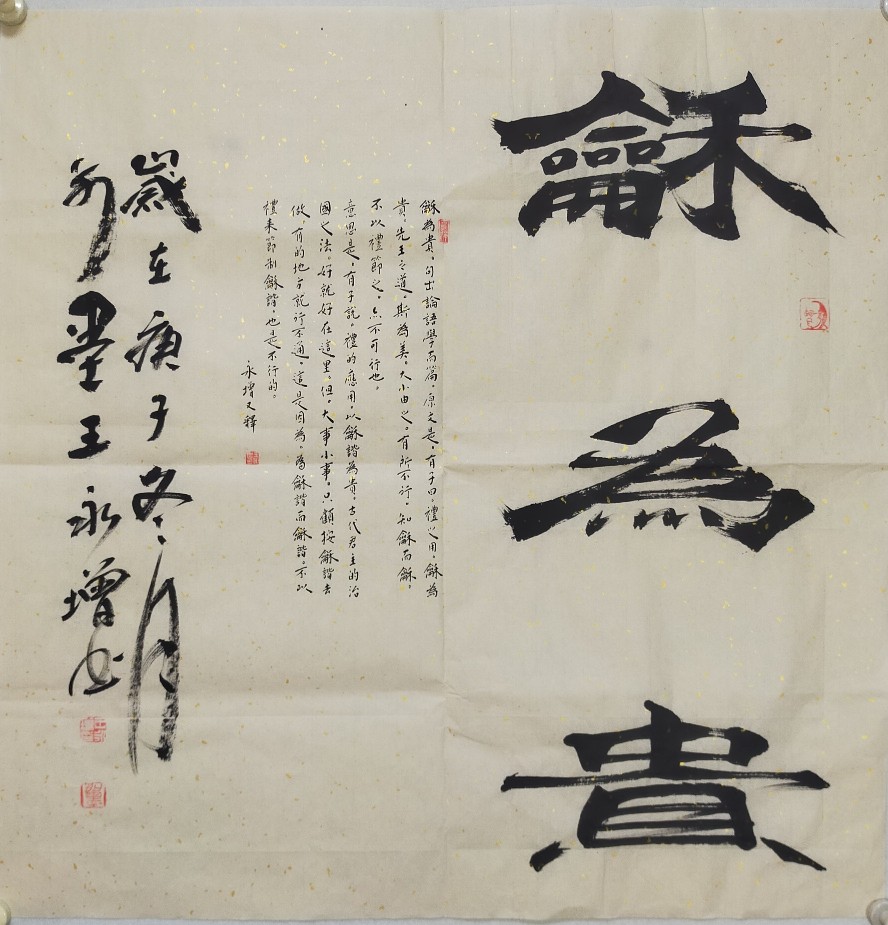 龢為貴
龢為貴，句出論語學而篇，原文是，有子曰，禮之用，龢為
貴，先王之道，斯為美，大小由之，有所不行，知龢而龢，
不以禮節之，亦不可行也。
意思是，有子說，禮的應用，以龢諧為貴，古代君主的治
國之法，好就好在這里。但，大事小事，只顧按龢諧去
做，有的地方就行不通，這是因為，為龢諧而龢諧，不以
禮来節制龢諧，也是不行的。
永增又釋
歲在庚子冬月
王永增书